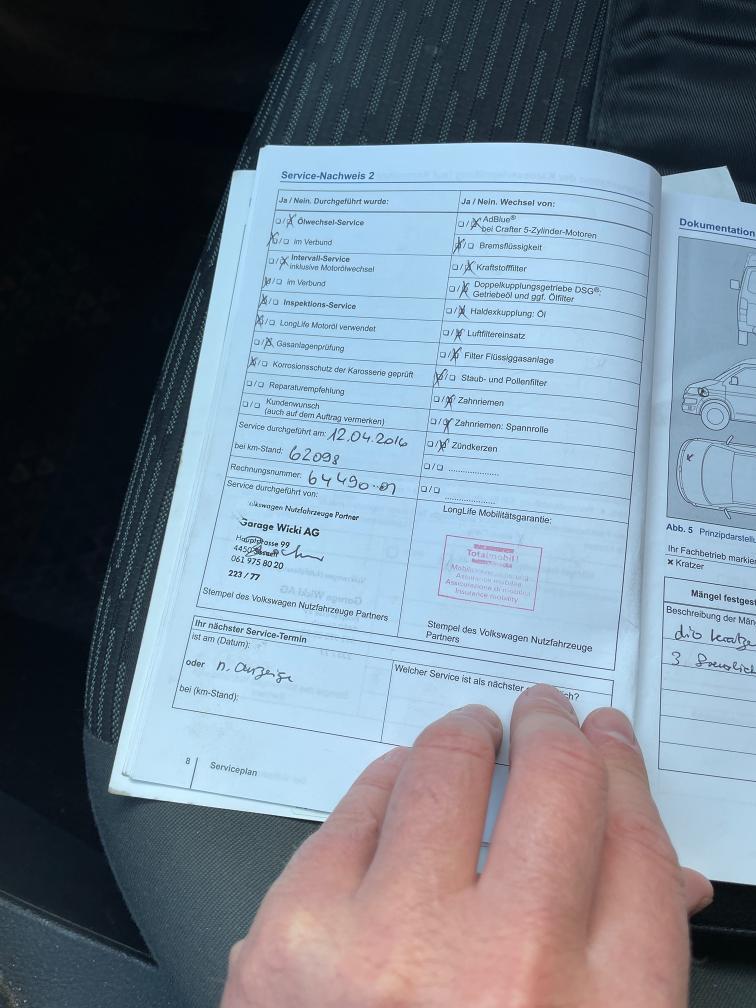 Service-Nachweis 2
Ja / Nein. Durchgeführt wurde:
☐/☒ Ölwechsel-Service
☒/☐ im Verbund
☐/☒ Intervall-Service
inklusive Motorölwechsel
☒/☐ im Verbund
☒/☐ Inspektions-Service
☒/☐ LongLife Motoröl verwendet
☐/☒ Gasanlagenprüfung
☒/☐ Korrosionsschutz der Karosserie geprüft
☐/☐ Reparaturempfehlung
☐/☐ Kundenwunsch
(auch auf dem Auftrag vermerken)
Service durchgeführt am: 12.04.2016
bei km-Stand: 62098
Rechnungsnummer: 64490-01
Service durchgeführt von:
Volkswagen Nutzfahrzeuge Partner
Garage Wicki AG
Hauptstrasse 99
4450
061 975 80 20
223 / 77
Stempel des Volkswagen Nutzfahrzeuge Partners
Ja / Nein. Wechsel von:
☐/☒ AdBlue®
bei Crafter 5-Zylinder-Motoren
☒/☐ Bremsflüssigkeit
☐/☒ Kraftstofffilter
☐/☒ Doppelkupplungsgetriebe DSG®:
Getriebeöl und ggf. Ölfilter
☐/☒ Haldexkupplung: Öl
☐/☒ Luftfiltereinsatz
☐/☒ Filter Flüssiggasanlage
☒/☐ Staub- und Pollenfilter
☐/☒ Zahnriemen
☐/☒ Zahnriemen: Spannrolle
☐/☒ Zündkerzen
☐/☐ ....................
☐/☐ ....................
LongLife Mobilitätsgarantie:
Totalmobil!
Assurance mobilité
Assicurazione di mobilità
Insurance mobility
Stempel des Volkswagen Nutzfahrzeuge
Partners
Ihr nächster Service-Termin
ist am (Datum):
oder n. Anzeige
bei (km-Stand):
Welcher Service ist als nächster
8 Serviceplan
Dokumentation
Abb. 5 Prinzipdarstell
Ihr Fachbetrieb markier
× Kratzer
Mängel festges
Beschreibung der Män